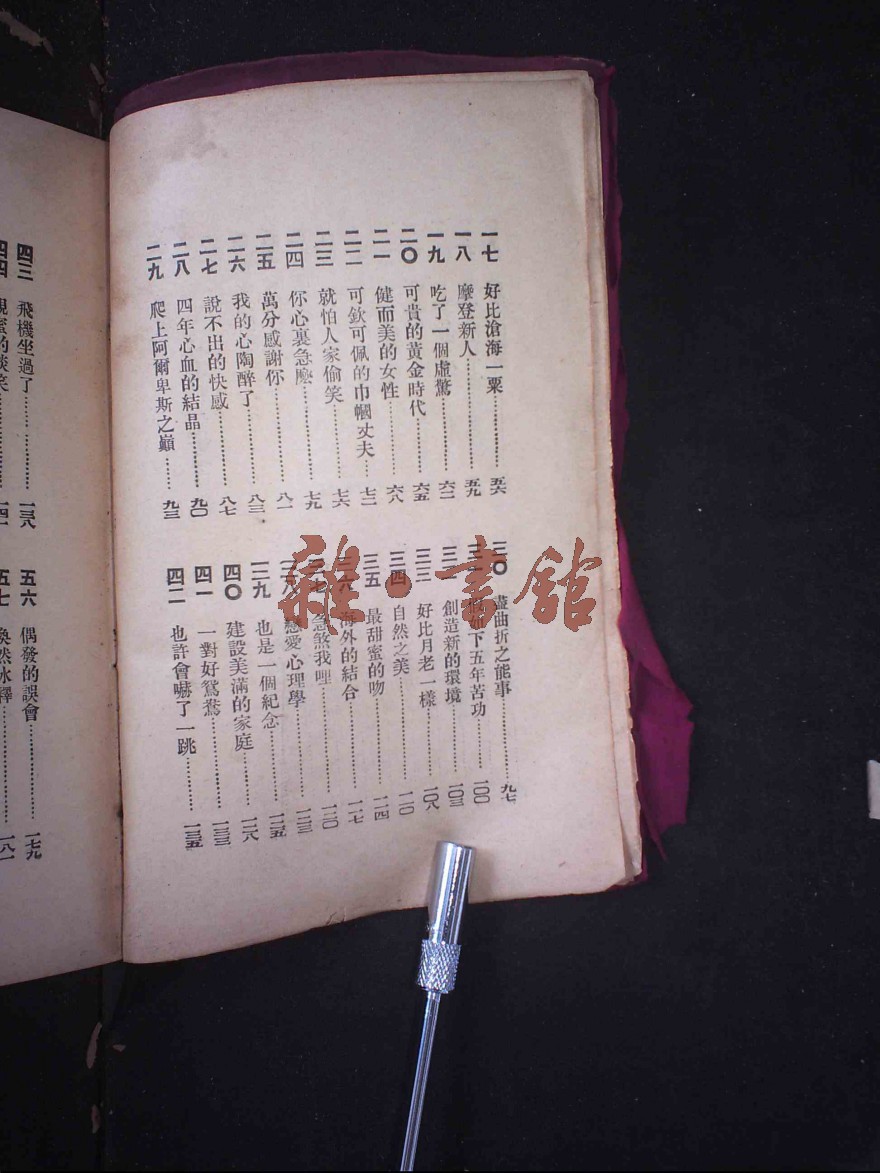 一七 好比滄海一粟 五六
一八 摩登新人 五九
一九 吃了一個虛驚 六二
二〇 可貴的黃金時代 六五
二一 健而美的女性 六八
二二 可欽可佩的巾幗丈夫 七二
二三 就怕人家偷笑 七六
二四 你心裏急麽 七九
二五 萬分感謝你 八一
二六 我的心陶醉了 八三
二七 說不出的快感 八七
二八 四年心血的結晶 九〇
二九 爬上阿爾卑斯之巔 九三
三〇 盡曲折之能事 九七
三一 下五年苦功 一〇〇
三二 創造新的環境 一〇三
三三 好比月老一樣 一〇八
三四 自然之美 一一〇
三五 最甜蜜的吻 一一四
三六 海外的結合 一一七
三七 急煞我哩 一二〇
三八 戀愛心理學 一二三
三九 也是一個紀念 一二五
四〇 建設美滿的家庭 一二八
四一 一對好鴛鴦 一三三
四二 也許會嚇了一跳 一三五
四三 飛機坐過了 一三八
四四 親蜜的談笑 一四一
五六 偶發的誤會 一七九
五七 渙然冰釋 一八一
雜·書館